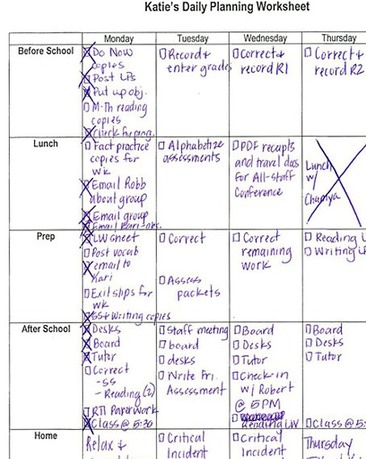 Katie's Daily Planning Worksheet
Monday
Tuesday
Wednesday
Thursday
Before School
Do Now
copies
Post LPs
Put up obj.
M-Th reading
copies
Record +
enter grades
Correct +
record R1
Correct +
record R2
Lunch
Fact practice
copies for
wk
Email Robb
about group
Email group
Alphabetize
assessments
PDF receipts
and travel docs
for All-staff
Conference
Lunch
w/
Prep
LW sheet
Post vocab
email to
Kari
Exit slips for
wk
SS + Writing copies
Correct
Assess
packets
Correct
remaining
work
Reading
Writing
After School
Desks
Board
Tutor
Correct
-SS
-Reading (2)
RTI Paperwork
Class @ 5:30
Staff meeting
board
desks
Write Fri.
Assessment
Board
Desks
Tutor
Check-in
w/ Robert
@ 5PM
Reading LW
Board
Desks
Tutor
Class @ 5:
Home
Relax +
Critical
Incident
Critical
Incident
Thursday